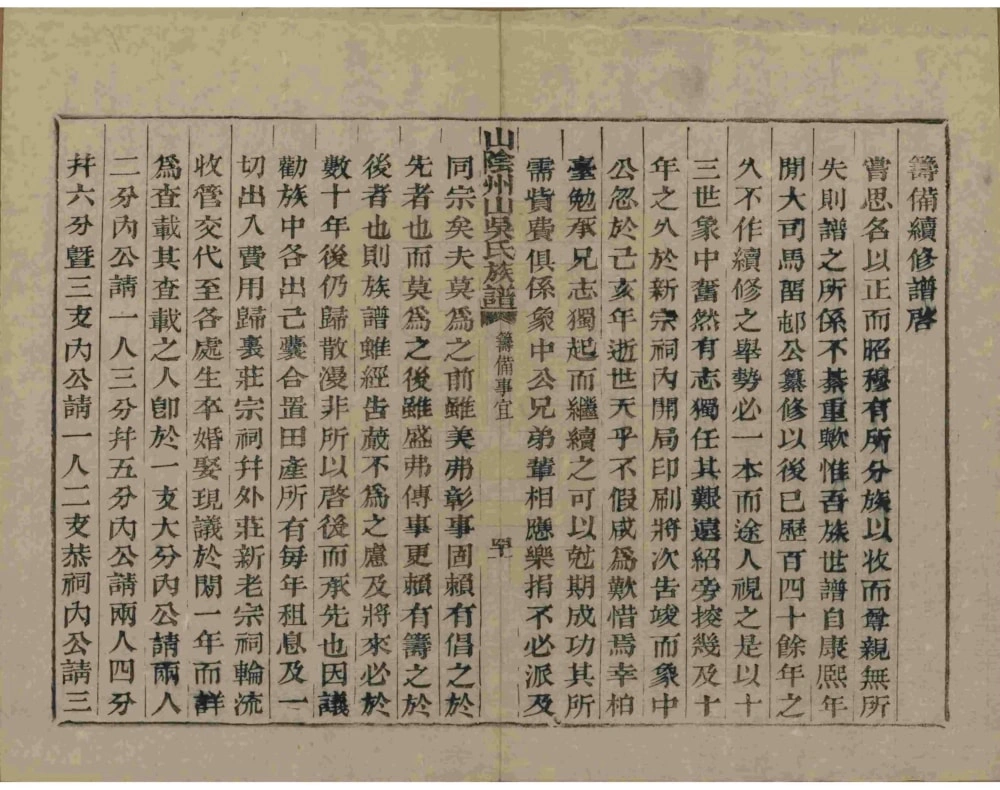 籌備續修譜啓
嘗思名以正而昭穆有所分族以收而尊親無所
失則譜之所係不綦重歟惟吾族世譜自康熙年
閒大司馬留邨公纂修以後已歷百四十餘年之
久不作續修之舉勢必一本而途人視之是以十
三世象中奮然有志獨任其艱遠紹旁搜幾及十
年之久於新宗祠內開局印刷將次告竣而象中
公忽於己亥年逝世天乎不假咸爲歎惜焉幸柏
臺勉承兄志獨起而繼續之可以尅期成功其所
需貲費俱係象中公兄弟輩相應樂捐不必派及
山陰州山吳氏族譜 籌備事宜
同宗矣夫莫爲之前雖美弗彰事固賴有倡之於
先者也而莫爲之後雖盛弗傳事更賴有籌之於
後者也則族譜雖經告蕆不爲之慮及將來必於
數十年後仍歸散漫非所以啓後而承先也因議
勸族中各出己囊合置田產所有每年租息及一
切出入費用歸裏莊宗祠幷外莊新老宗祠輪流
收管交代至各處生卒婚娶現議於閏一年而詳
爲查載其查載之人卽於一支大分內公請兩人
二分內公請一人三分幷五分內公請兩人四分
幷六分暨三支內公請一人二支恭祠內公請三